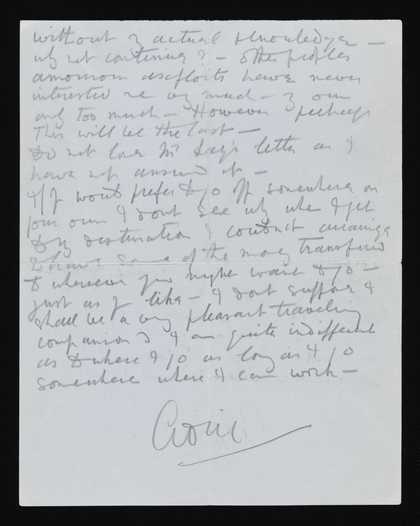 without of actual knowledge —
why not continuing? — Other peoples
amorous exploits have never
interested me very much — my own
only too much — However perhaps
this will be the last —
Do not lose Mr letter as I
have not answered it —
If you'd prefer to go off somewhere on
your own I dont see why when I get
to my destination I couldnt arrange
to have some of the money transfered
to wherever you might want to go —
just as you like — I dont suppose I
shall be a very pleasant traveling
companion & I am quite indifferent
as to where I go as long as I go
somewhere where I can work —